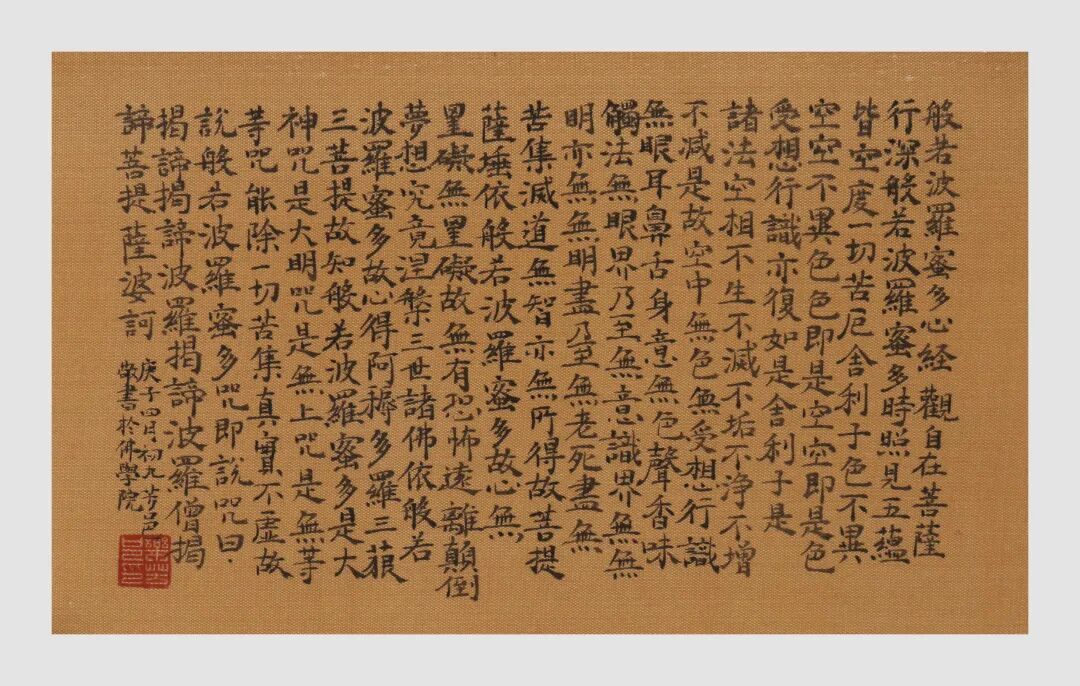 般若波羅蜜多心経 觀自在菩薩
行深般若波羅蜜多時照見五蘊
皆空度一切苦厄舍利子色不異
空空不異色色即是空空即是色
受想行識亦復如是舍利子是
諸法空相不生不滅不垢不淨不增
不減是故空中無色無受想行識
無眼耳鼻舌身意無色聲香味
觸法無眼界乃至無意識界無無
明亦無無明盡乃至無老死盡無
苦集滅道無智亦無所得故菩提
薩埵依般若波羅蜜多故心無
罣礙無罣礙故無有恐怖遠離顛倒
夢想究竟涅槃三世諸佛依般若
波羅蜜多故心得阿耨多羅三藐
三菩提故知般若波羅蜜多是大
神咒是大明咒是無上咒是無等
等咒能除一切苦集真實不虛故
說般若波羅蜜多咒即說咒曰
揭諦揭諦波羅揭諦波羅僧揭
諦菩提薩婆訶
庚子四月初九芳邑
学書於佛學院